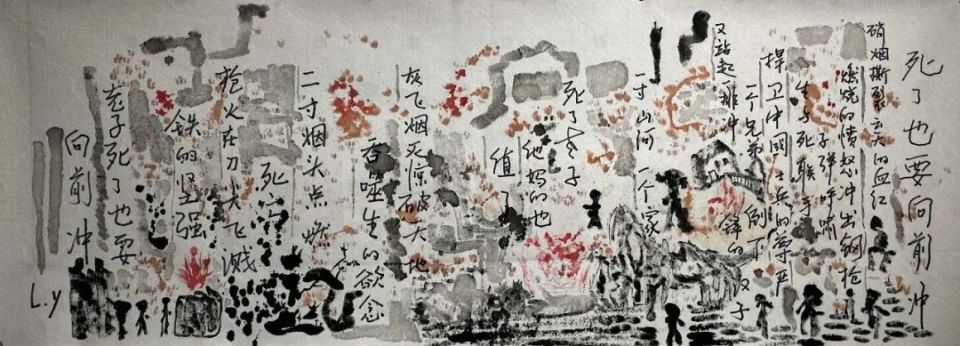 死了也要向前冲
硝烟撕裂云天的血红
燃烧的愤怒冲出钢枪
子弹呼啸
生与死联手
捍卫中国士兵的尊严
一个兄弟倒下
又站起一排冲锋的汉子
一寸山河一个家
死了老子
他妈的也
值了
灰飞烟灭惊破大地
吞噬生的欲念
二寸烟头点燃
死亡
枪火在刀飞溅
铁的坚强
老子死了也要
向前冲
L.y